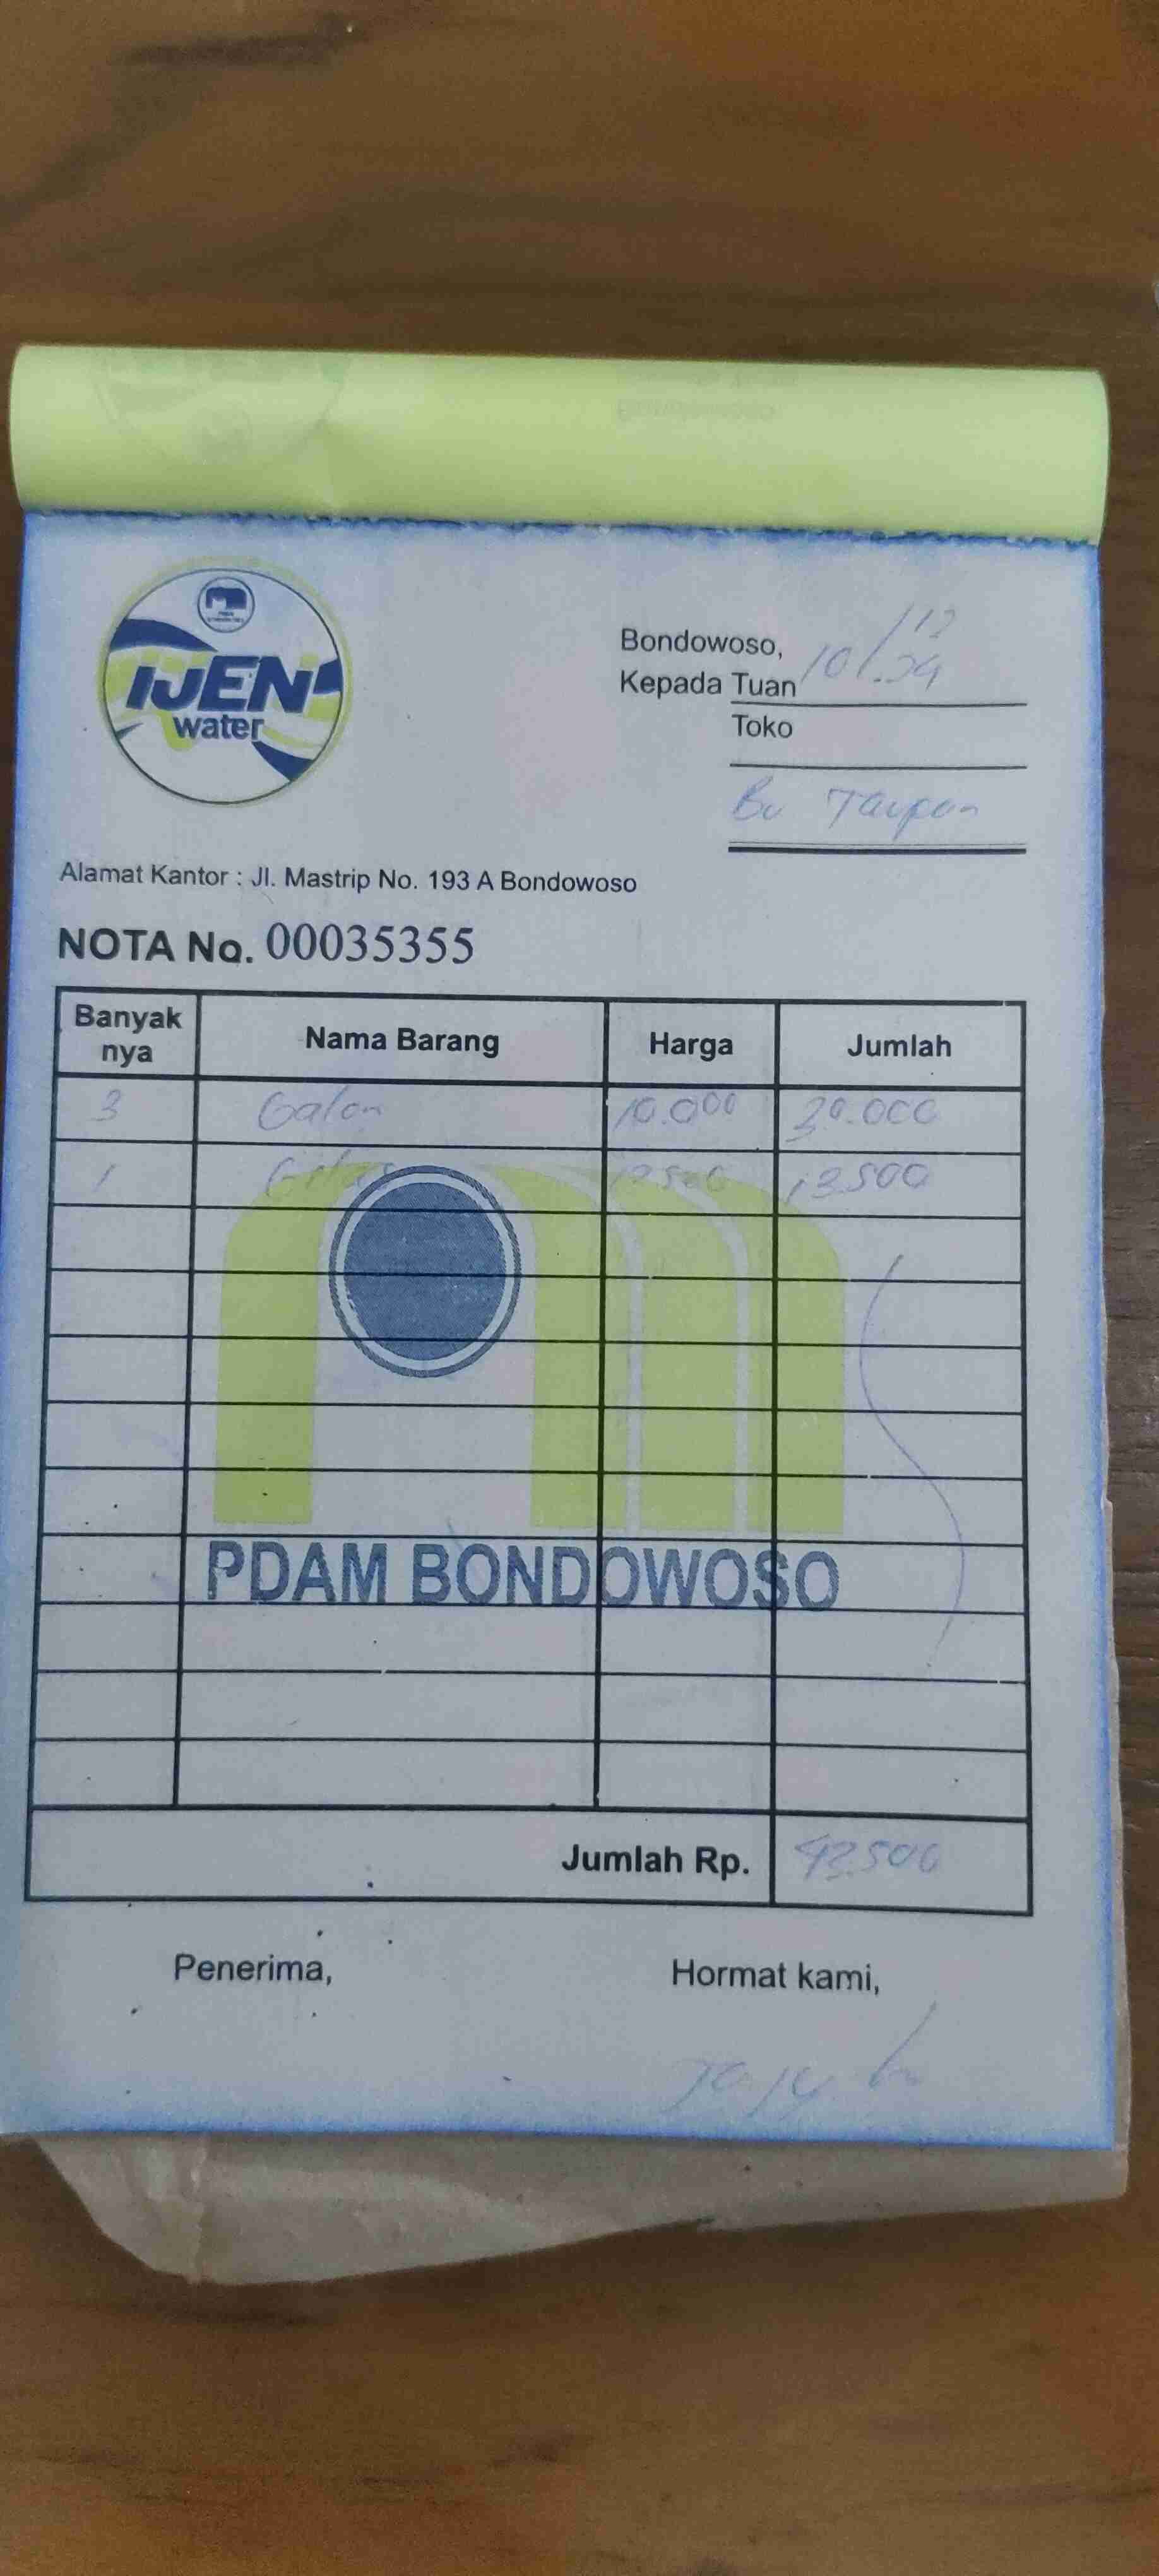 IJEN
water
Bondowoso, 10/12.24
Kepada Tuan
Toko
Bu Taupan
Alamat Kantor : Jl. Mastrip No. 193 A Bondowoso
NOTA No. 00035355
Banyak nya Nama Barang Harga Jumlah
3 Galon 10.000 30.000
1 Gelas 13500 13.500
PDAM BONDOWOSO
Jumlah Rp. 43.500
Penerima, Hormat kami,